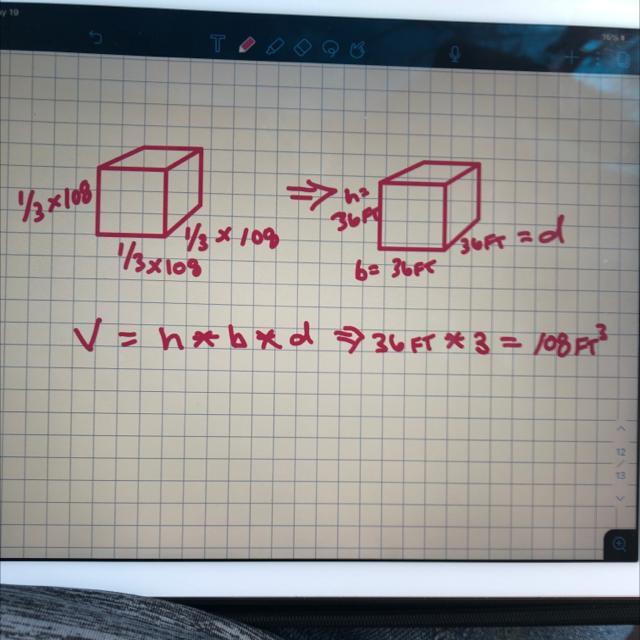 76%
1/3 × 108
1/3 × 108
1/3 × 108
⇒
h=
36FT
b= 36FT
36FT = d
V = h * b * d ⇒ 36FT * 3 = 108FT³
12
/
13